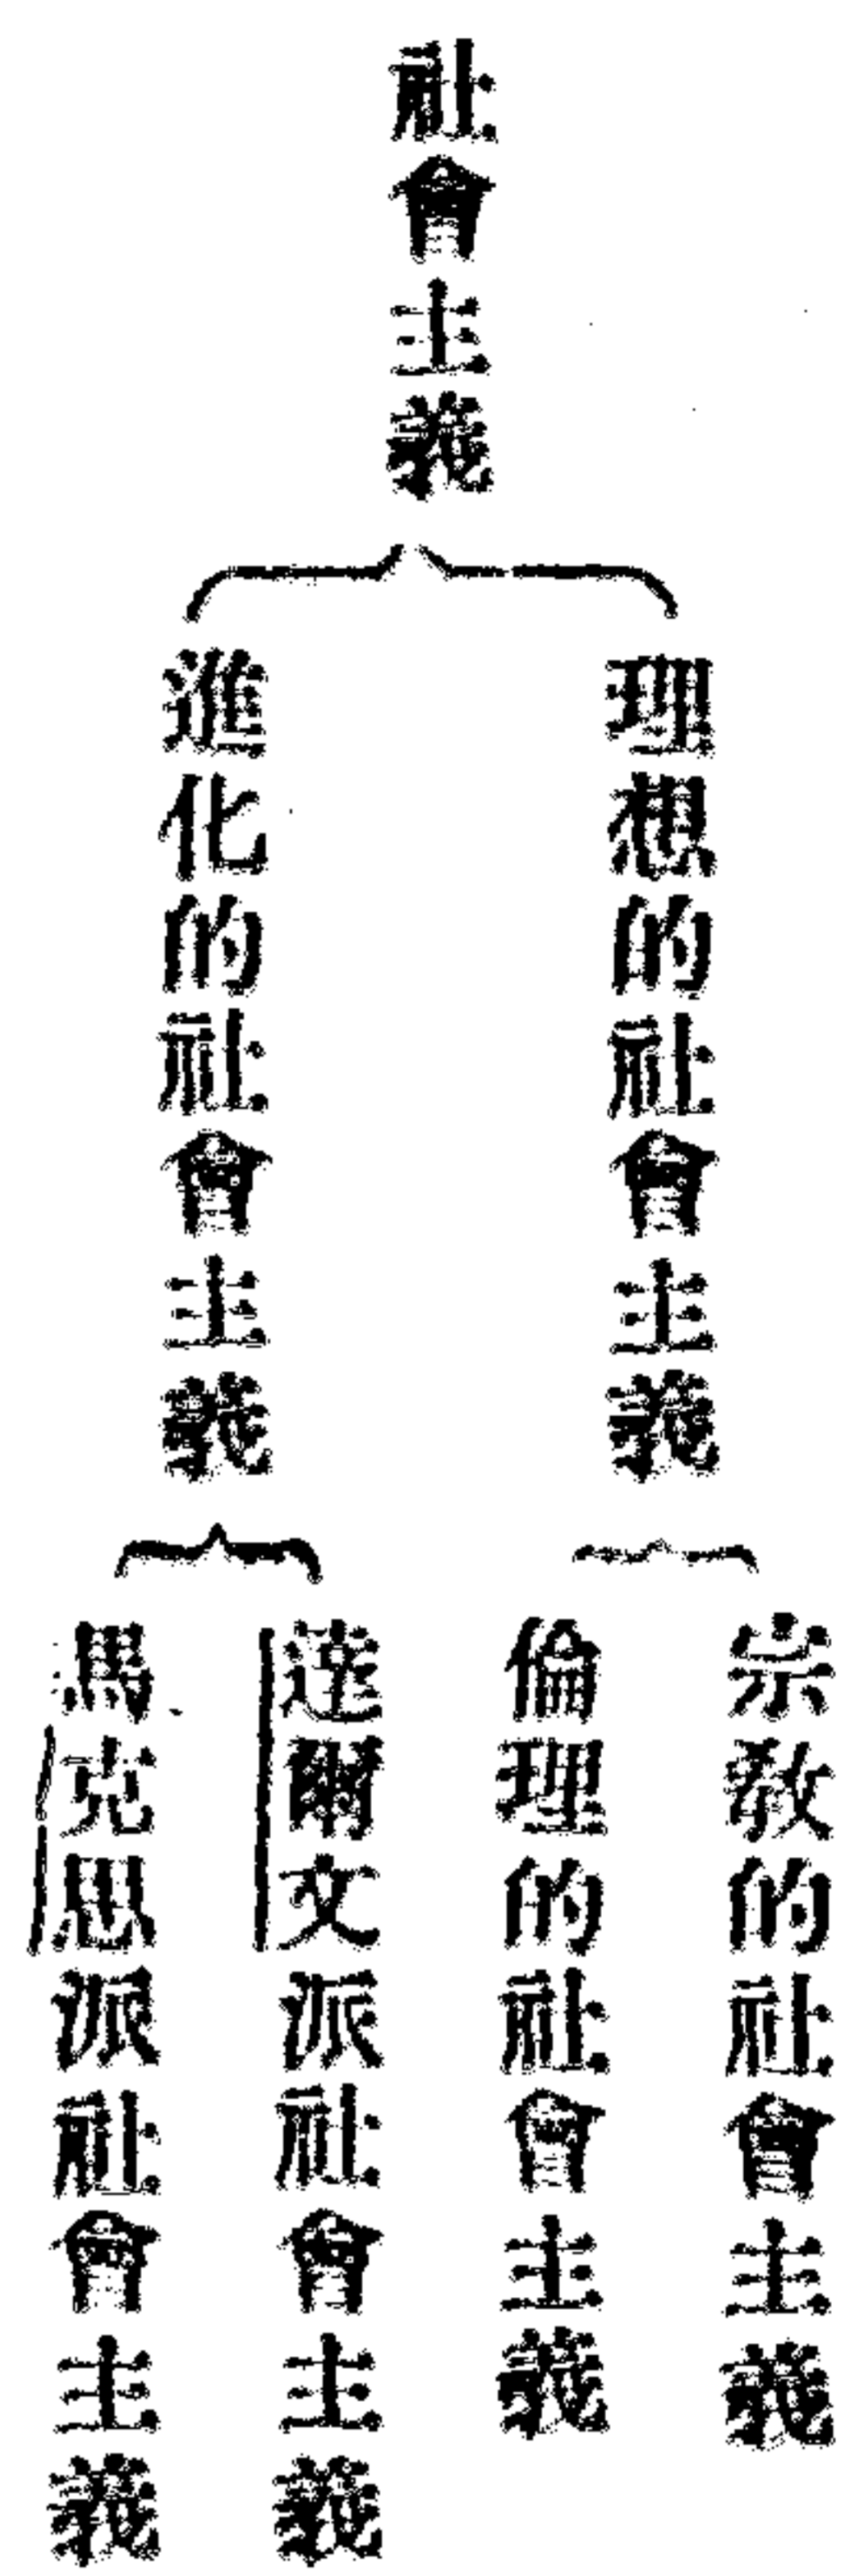 社會主義
理想的社會主義
進化的社會主義
宗教的社會主義
倫理的社會主義
達爾文派社會主義
馬克思派社會主義